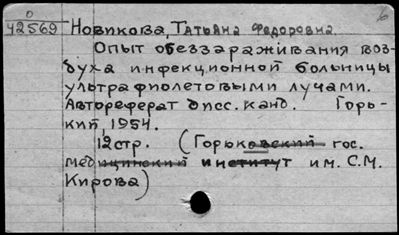 о
42569 Новикова, Татьяна Федоровна.
Опыт обеззараживания воз-
духа инфекционной больницы
ультрафиолетовыми лучами.
Автореферат дисс. канд. Горь-
кий, 1954.
12стр. (Горьковский гос.
медицинский институт им. С.М.
Кирова)